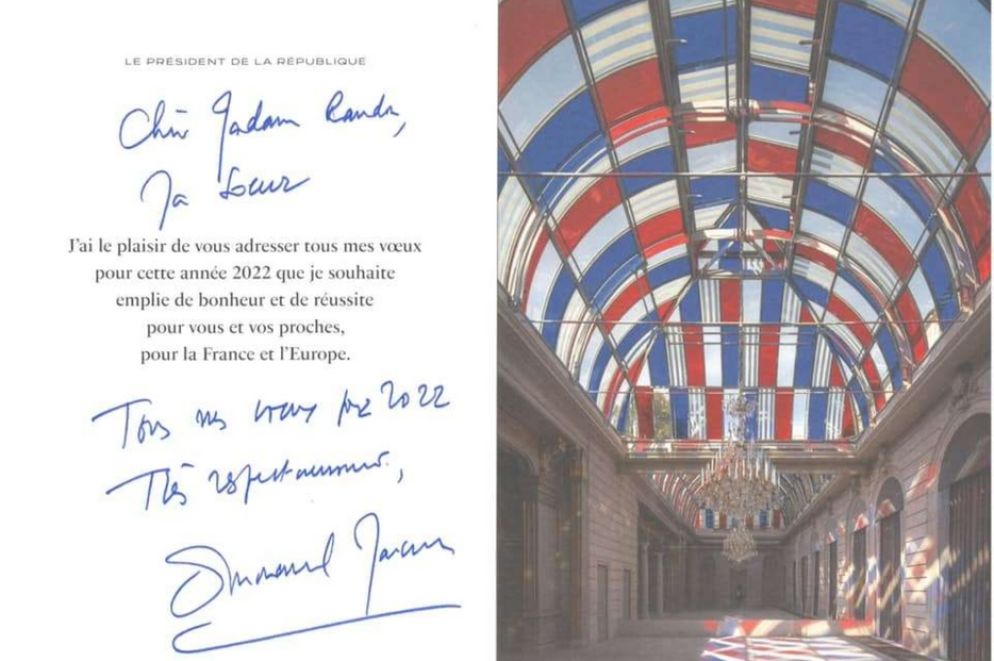 LE PRÉSIDENT DE LA RÉPUBLIQUE
Chère Madame
Ma Soeur
J'ai le plaisir de vous adresser tous mes vœux
pour cette année 2022 que je souhaite
emplie de bonheur et de réussite
pour vous et vos proches,
pour la France et l'Europe.
Tous mes vœux pour 2022
Très respectueusement,
Emmanuel Macron